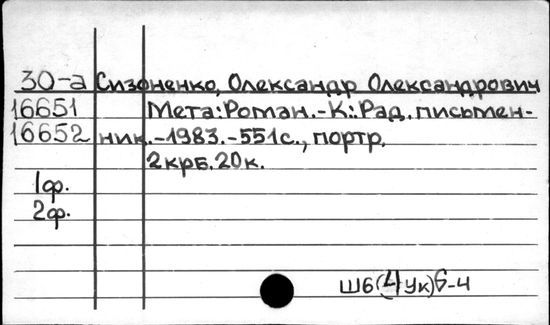 30-а Сизоненко, Олександр Олександрович
16651 Мета: Роман.-К.: Рад. письмен-
16652 ник.-1983.-551с., портр.
2крб. 20к.
1ф.
2ф.
Ш6(4Ук)6-4